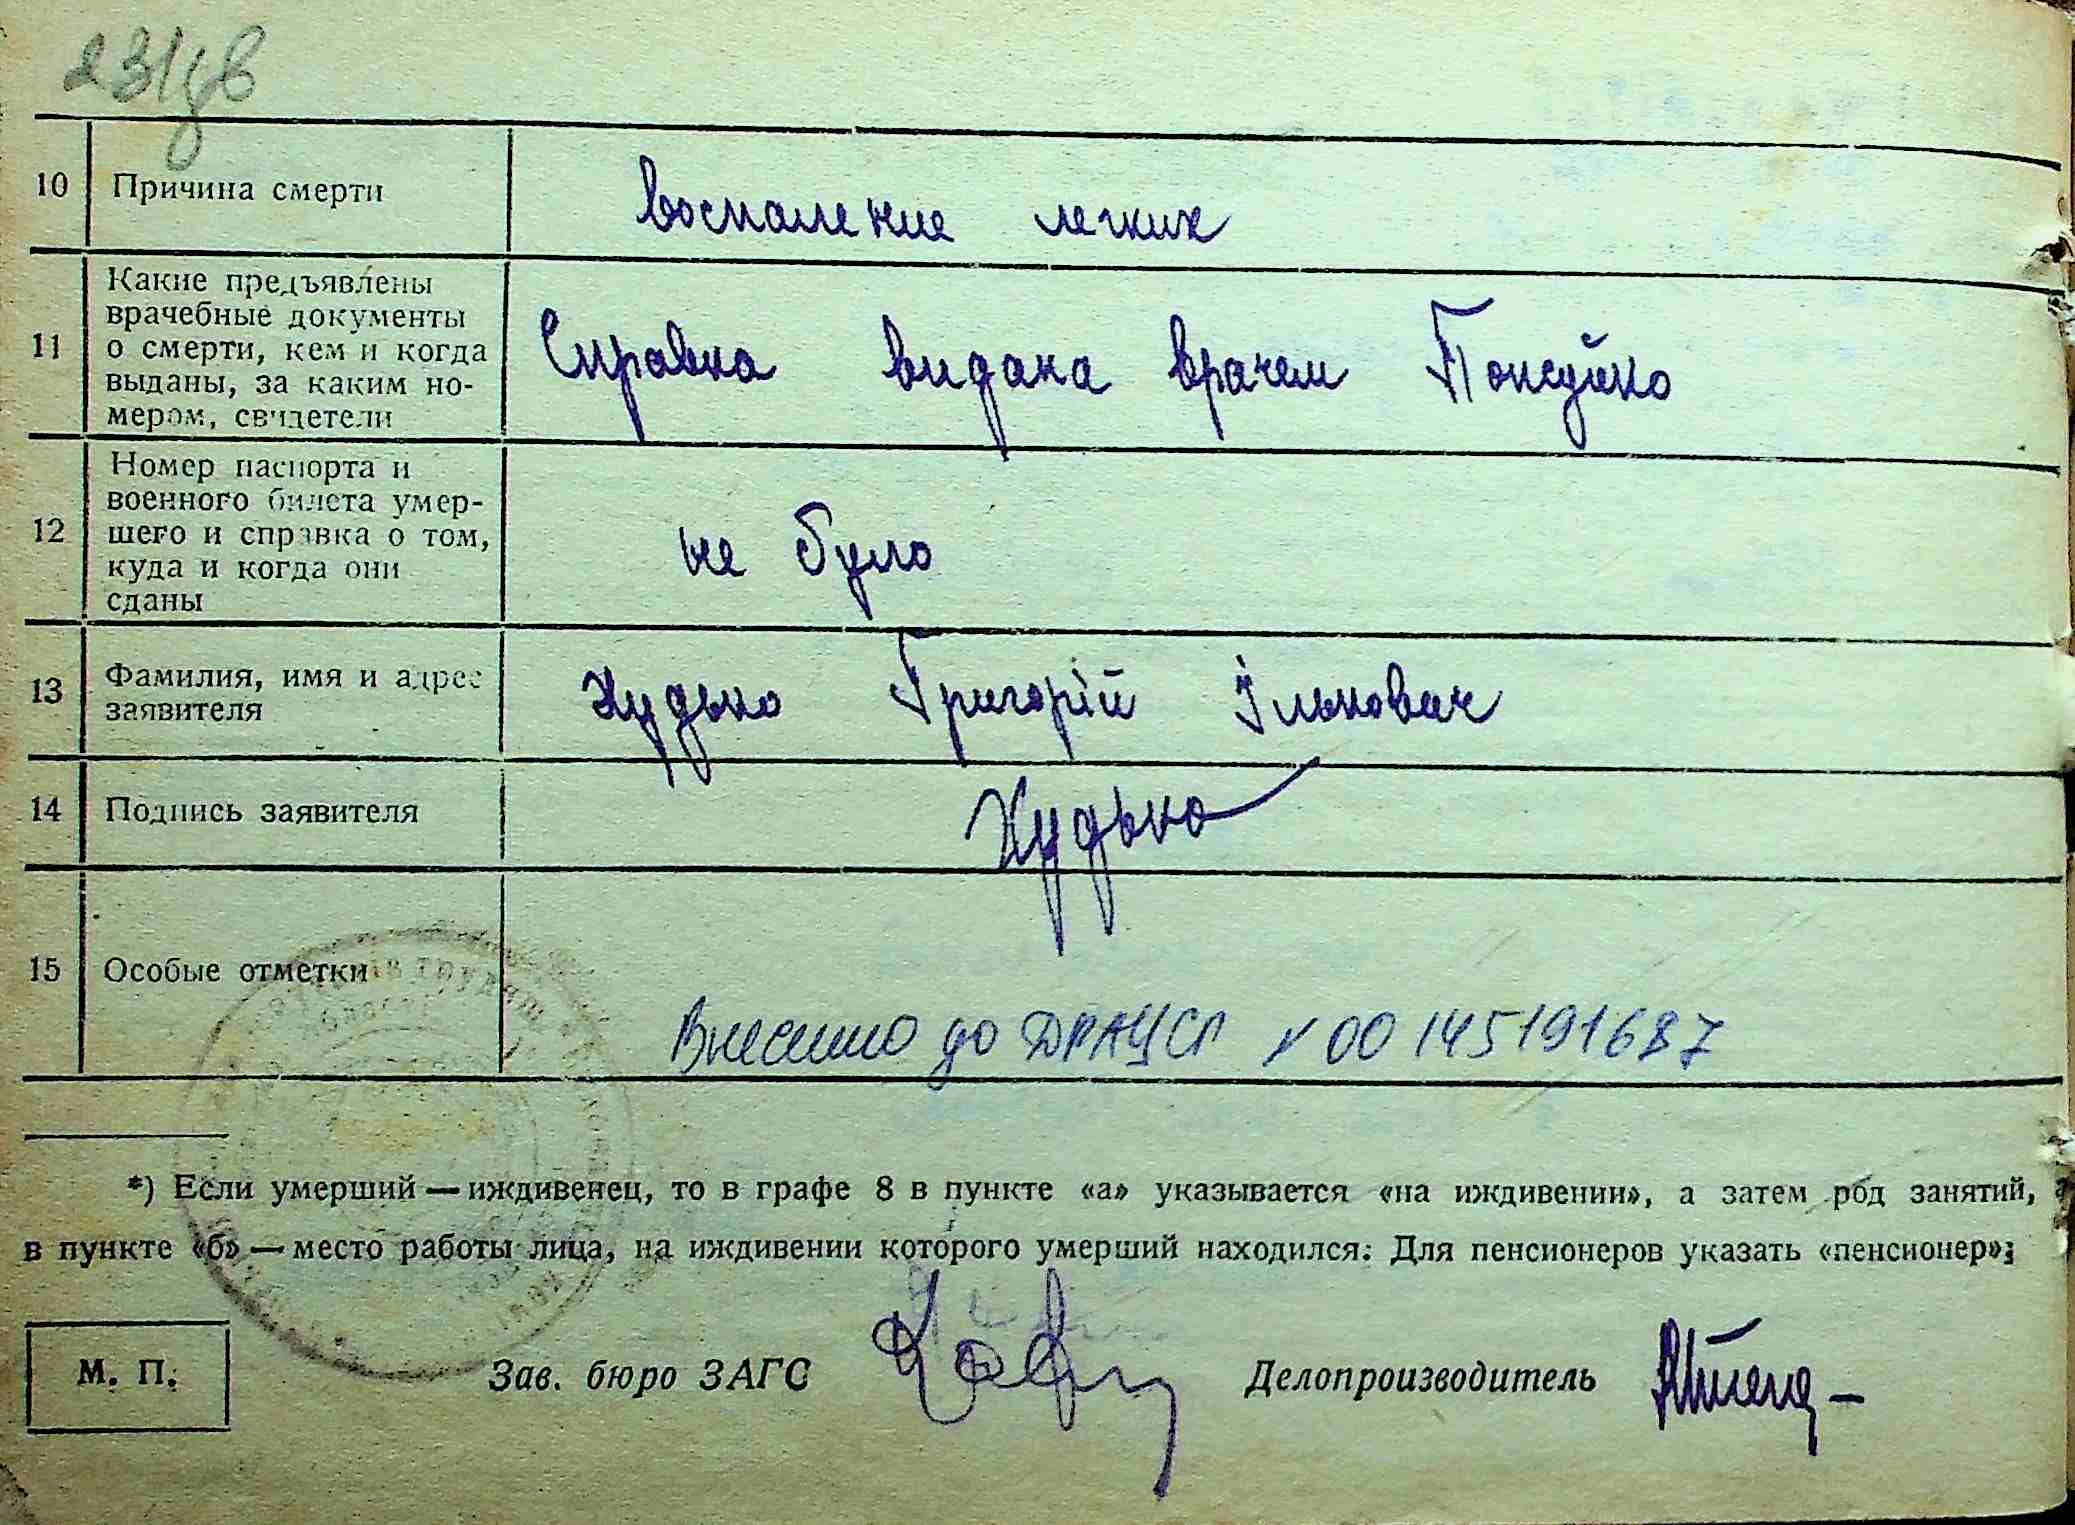 10 Причина смерти воспаление легких
11 Какие предъявлены
врачебные документы
о смерти, кем и когда
выданы, за каким но-
мером, свидетели
Справка видана врачем
12 Номер паспорта и
военного билета умер-
шего и справка о том,
куда и когда они
сданы
не було
13 Фамилия, имя и адрес
заявителя
Худько Григорій Ількович
14 Подпись заявителя Худько
15 Особые отметки
Внесено до ДРАЦСГ № 00145191687
*) Если умерший — иждивенец, то в графе 8 в пункте «а» указывается «на иждивении», а затем род занятий,
в пункте «б» — место работы лица, на иждивении которого умерший находился. Для пенсионеров указать «пенсионер»;
М. П.
Зав. бюро ЗАГС
Делопроизводитель